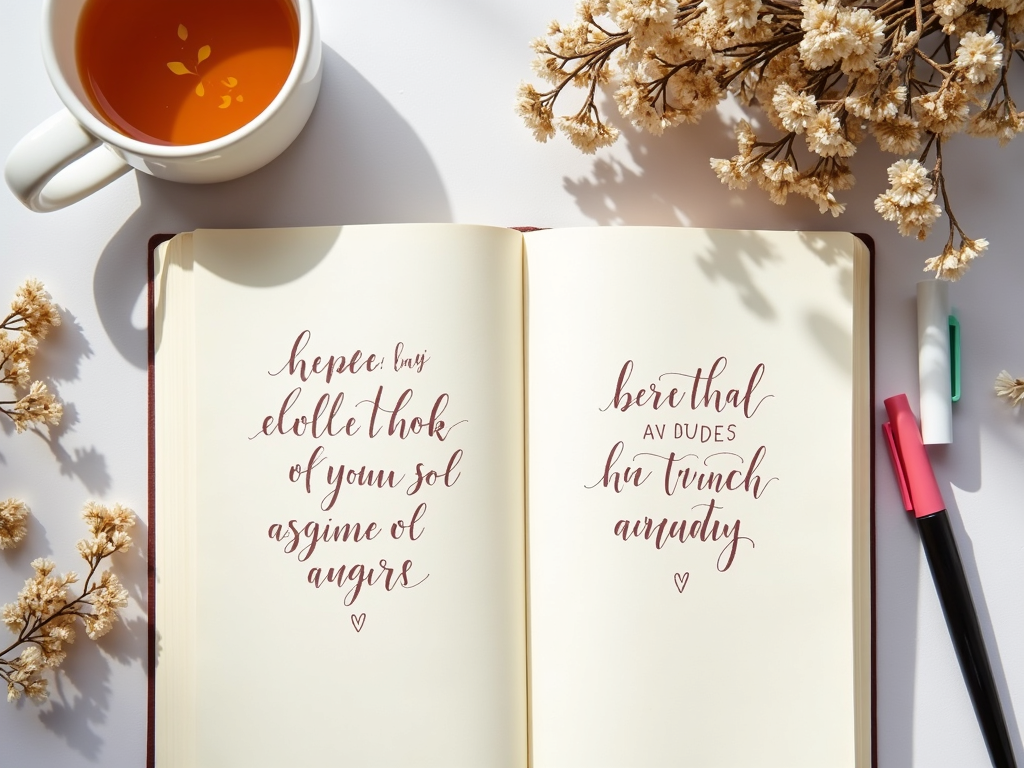 hepee! bay
elolle thok
of youu sol
asgime ol
augirs
bere thal
AV DUDES
hn Trinch
aınuadty